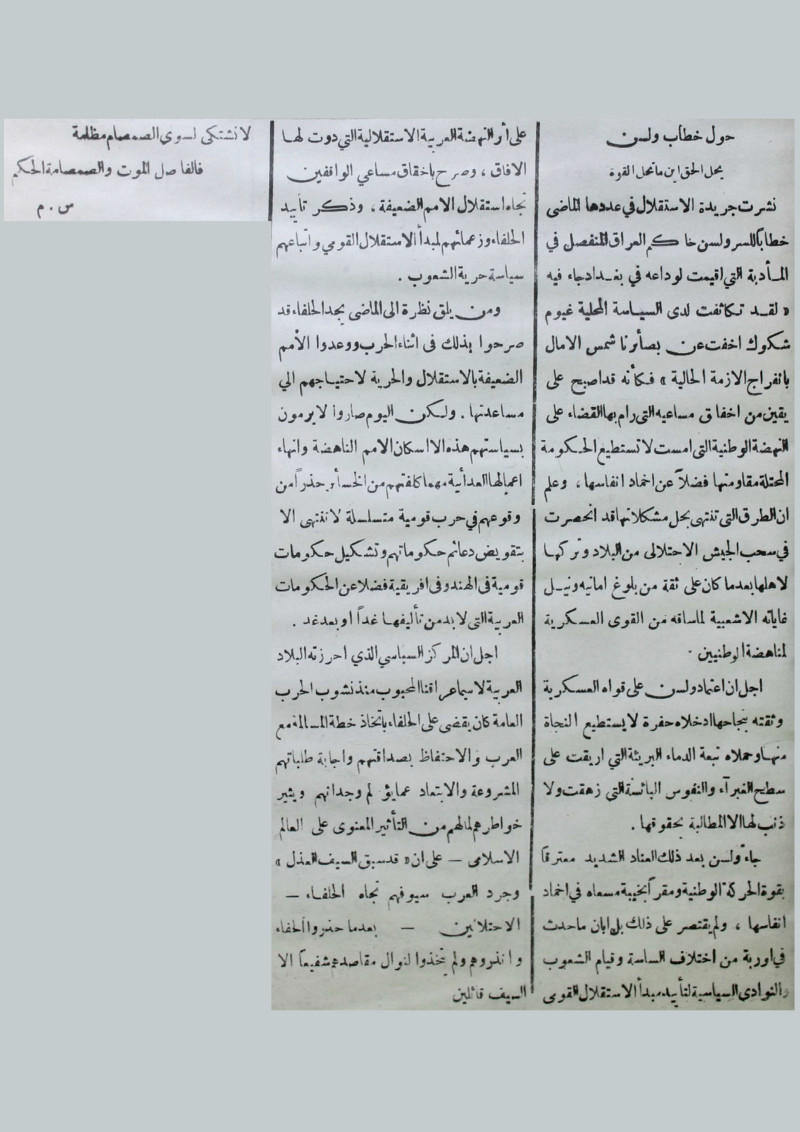 حول خطاب ولسن
يحل الحق اين ما تحل القوة
نشرت جريدة الاستقلال في عددها الماضي
خطاباً للسر ولسن حاكم العراق المنفصل في
المأدبة التي اقيمت لوداعه في بغداد جاء فيه
« لقد تكاثفت لدى السياسة المحلية غيوم
شكوك اخفت عن بصأرنا شمس الامال
بانفراج الازمة الحالية » فكأنه قد اصبح على
يقين من اخفاق مساعيه التي رام بها القضاء على
النهضة الوطنية التي امست لا تستطيع الحكومة
المحتلة مقاومتها فضلاً عن اخماد انفاسها ، وعلم
ان الطرق التي تنتهى بحل مشكلاتها قد انحصرت
في سحب الجيش الاحتلالى من البلاد وتركها
لاهلها بعدما كان على ثقة من بلوغ امانيه ونيل
غاياته الاشعبية لما ساقه من القوى العسكرية
لمناهضة الوطنيين .
اجل ان اعتماد ولسن على قواه العسكرية
وثقته بنجاحها ادخلاه حفرة لا يستطيع النجاة
منها وحملاه تبعة الدماء البريئة التي اريقت على
سطح الغبرآء والنفوس البائسة التي زهقت ولا
ذنب لها الا المطالبة بحقوقها .
جاء ولسن بعد ذلك العناد الشديد معترفا
بقوة الحركة الوطنية ومقراً بخيبة مسعاه في اخماد
انفاسها ، ولم يقتصر على ذلك بل ابان ما حدث
في اوربة من اختلاف الساسة وقيام الشعوب
والنوادي السياسية لتأييد مبدأ الاستقلال القومى
على أثر النهضة العربية الاستقلالية التي دوت لها
الافاق ، وصرح باخفاق مساعي الواقفين
تجاه استقلال الامم الضعيفة ، وذكر تأييد
الحلفاء وزعمائهم لمبدأ الاستقلال القومي واتباعهم
سياسة حرية الشعوب .
ومن يلق نظرة الى الماضى يجد الحلفاء قد
صرحوا بذلك فى اثناء الحرب ووعدوا الأمم
الضعيفة بالاستقلال والحرية لاحتياجهم الي
مساعدتها . ولكن اليوم صاروا لا يرمون
بسياستهم هذه الا اسكان الامم الناهضة وانهاء
اعمالها العدأئية مهما كلفتهم من الخسأر حذراً من
وقوعهم في حرب قومية متسلسلة لا تنتهى الا
بتقويض دعائم حكوماتهم وتشكيل حكومات
قومية فى الهند وفى افريقية فضلا عن الحكومات
العربية التى لا بد من تأليفها غداً او بعد غد .
اجل ان المركز السياسي الذي احرزته البلاد
العربية لا سيما عراقنا المحبوب منذ نشوب الحرب
العامة كان يقضى على الحلفاء باتخاذ خطة المسالمة مع
العرب والاحتفاظ بصداقتهم واجابة طلباتهم
المشروعة والابتعاد عما يؤلم وجدانهم ويثير
خواطرهم لما لهم من التأثير المعنوى على العالم
الاسلامى — على ان « قد سبق السيف العذل »
وجرد العرب سيوفهم تجاه الحلفاء —
الاحتلانين — بعدما حذروا الحلفاء
وانذروهم ولم يتخذوا لنوال مقاصدهم شفيعا الا
السيف قائلين
لا نشتكى لسوى الصمصام مظلمة
فالفاصل الموت والصمصامة الحكم
س . م